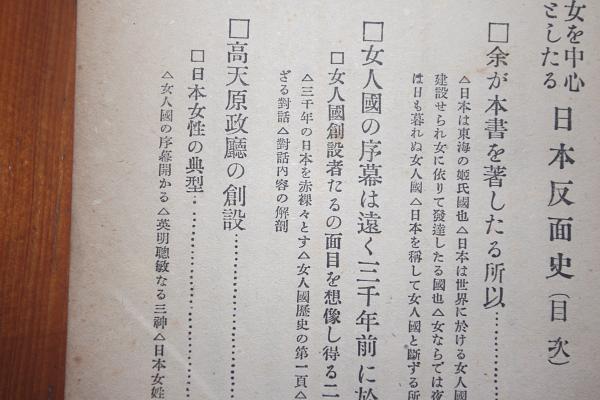 女を中心
としたる
日本反面史(目次)
□余が本書を著したる所以…………
△日本は東海の姬氏國也△日本は世界に於ける女人國
建設せられ女に依りて發達したる國也△女ならでは夜
は日も暮れぬ女人國△日本を稱して女人國と斷ずる所
□女人國の序幕は遠く三千年前に於
□女人國創設者たるの面目を想像し得る二
△三千年の日本を赤裸々とす△女人國歷史の第一頁△
ざる對話△對話內容の解剖
□高天原政廳の創設…………
□日本女性の典型…………
△女人國の序幕開かる△英明聰敏なる三神△日本女姓